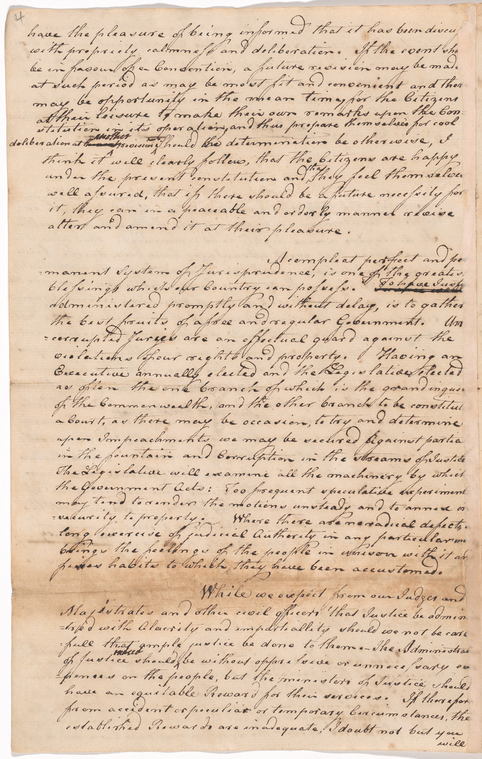 4
have the pleasure of being informed that it has been discu
with propriety calmness and deliberation. If the event sho
be in favour of a Convention, a future revision may be made
at such period as may be most fit and convenient and ther
may be opportunity in the mean time, for the Citizens
at their leisure to make their own remarks upon the Con-
stitution in its operation, and thus prepare themselves for cool
deliberation at another Should the determination be otherwise, I
think it will clearly follow, that the Citizens are happy
under the present Constitution and that they feel themselves
well assured, that if there should be a future necessity for
it, they can in a peaceable and orderly manner revise
alter and amend it at their pleasure.
A compleat perfect and pe
manent System of Jurisprudence, is one of the greates
blessings which our Country can possess. To have Justice
administered promptly and without delay, is to gather
the best fruits of a free and regular Government. Un
-corrupted Juries are an effectual guard against the
violations of our rights and property. Having an
Executive annually elected and the Legislative elected
as often the one branch of which is the grand inques
of the Commonwealth, and the other branch to be constitut
a Court, as there may be occasion, to try and determine
upon Impeachments, we may be secured against partia
in the fountain and Corruption in the streams of Justice
The Legislative will examine all the machinery by which
the Government Acts: Too frequent speculative experiment
may tend to render the motions unsteady and to annex
to property. Where there are no radical defects
long exercise of judicial Authority in any particular
brings the feelings of the people in unison with it
habits to which they have been accustomed.
While we expect from our Judges and
Magistrates and other civil officers that Justice be admin
with Alacrity and impartiality should we not be care
full that ample justice be done to them. The Administrat
of Justice should be without oppressive or unnecessary ex
-pences on the people, but the ministers of Justice should
have an equitable Reward for their services. If therefore
from accident or peculiar or temporary Circumstances, the
established Rewards are inadequate, I doubt not but you
will